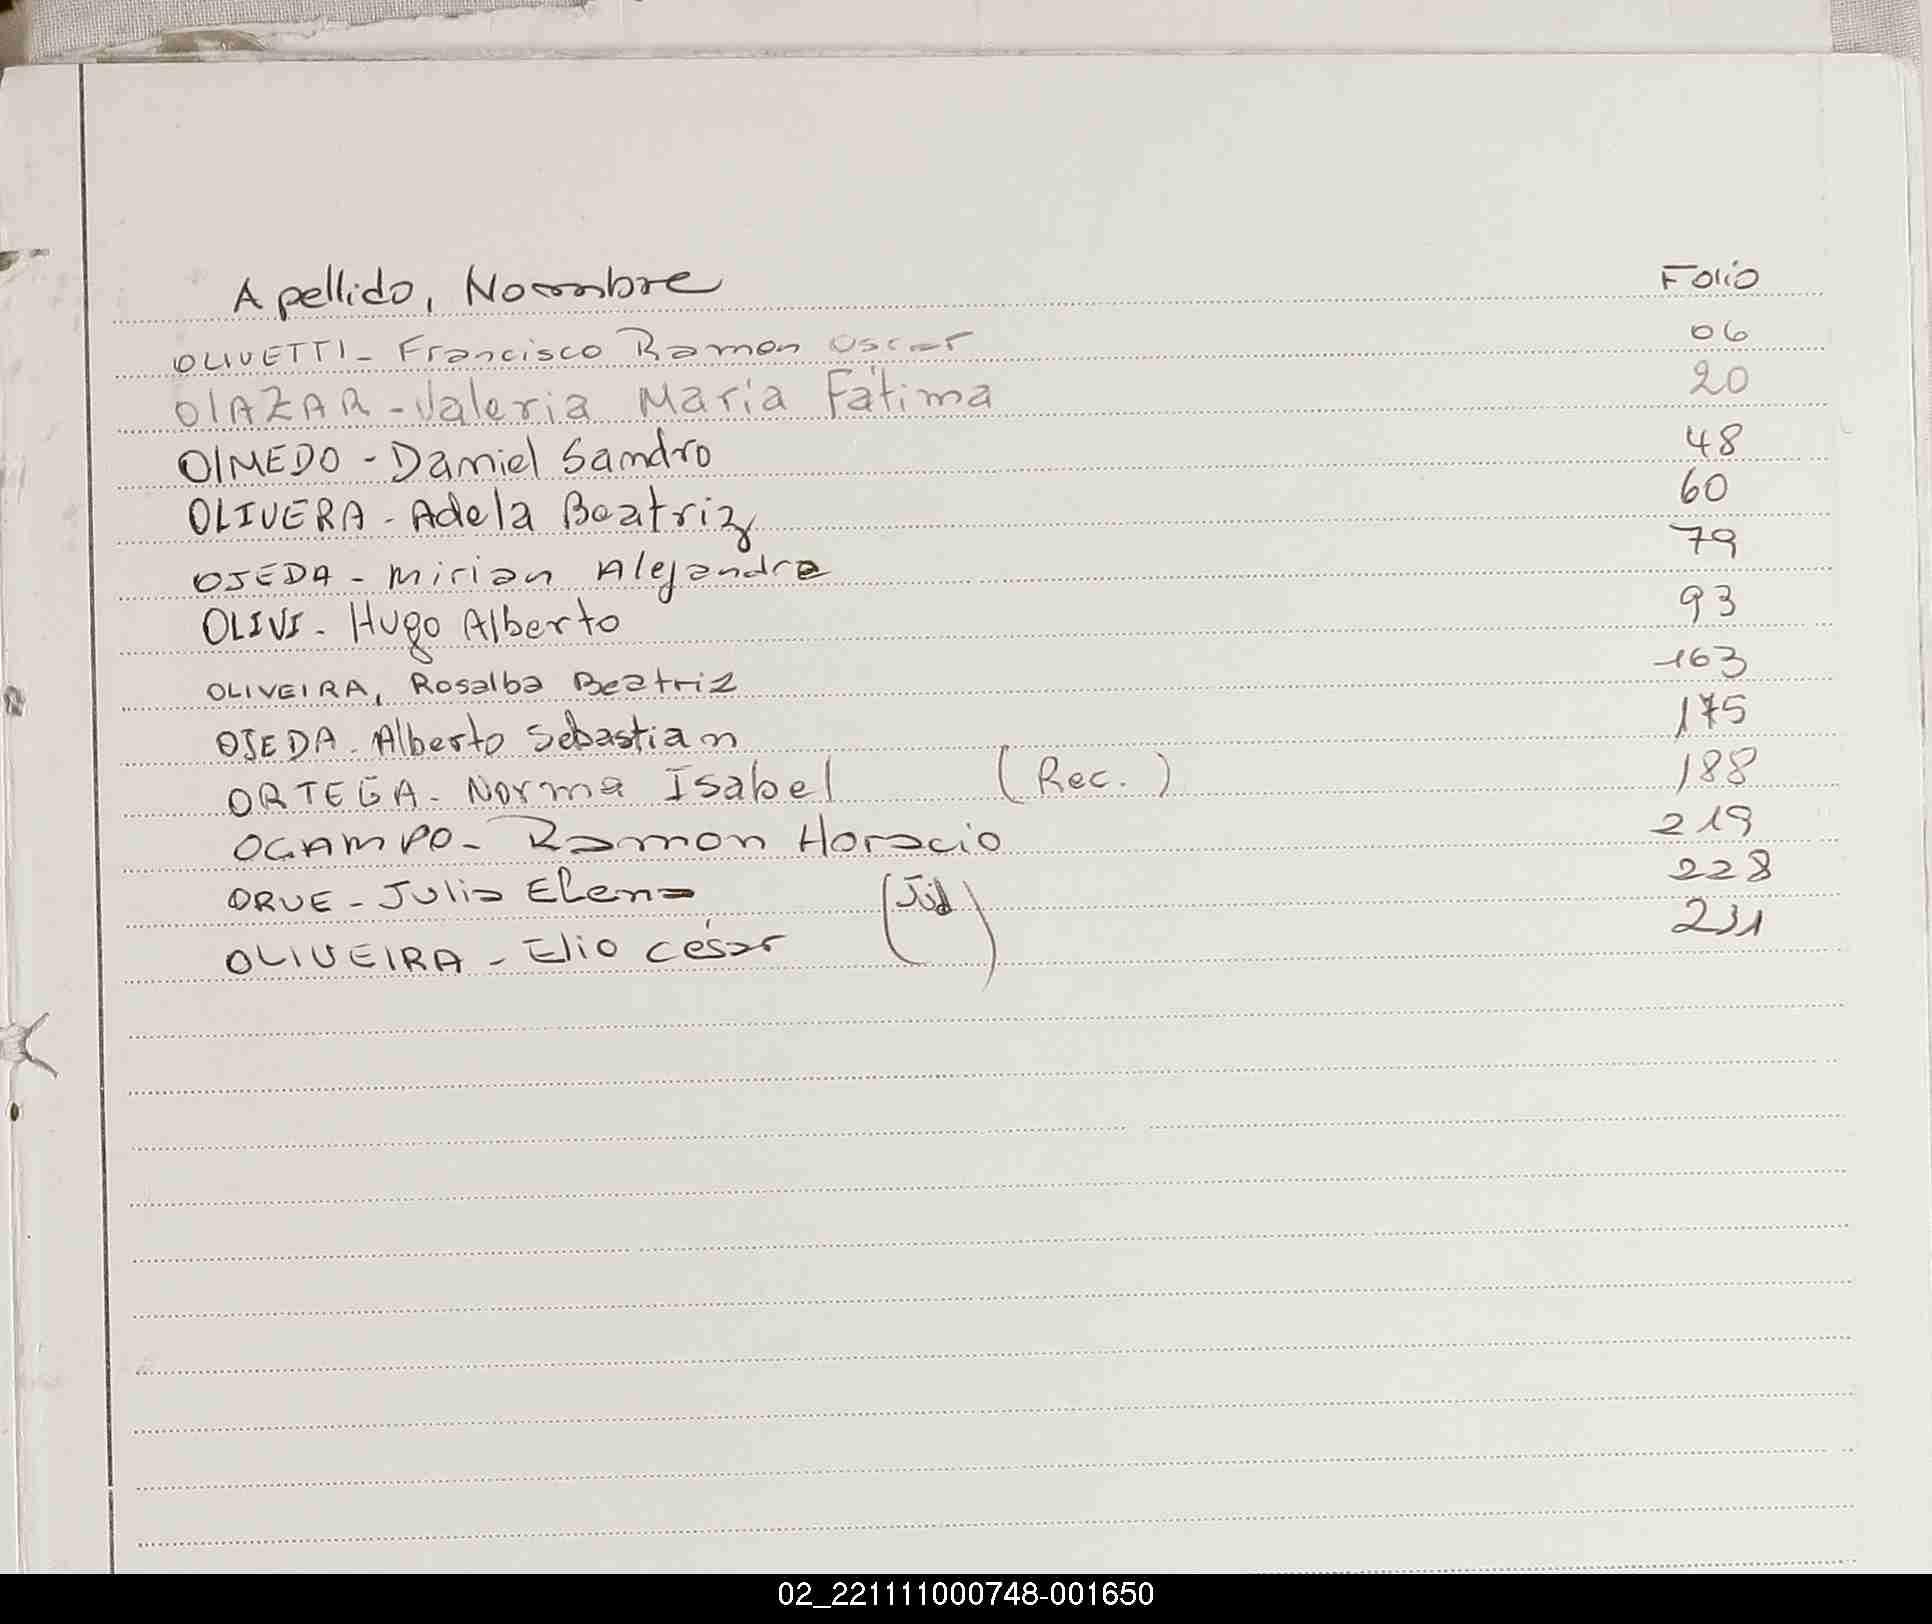 Apellido, Nombre Folio
OLIVETTI - Francisco Ramon Oscar 06
OlAZAR - Valeria María Fátima 20
OlMEDO - Daniel Sandro 48
OLIVERA - Adela Beatriz 60
OJEDA - Mirian Alejandra 79
OLIVI - Hugo Alberto 93
OLIVEIRA, Rosalba Beatriz 163
OJEDA - Alberto Sebastian 175
ORTEGA - Norma Isabel (Rec.) 188
OCAMPO - Ramon Horacio 219
ORUE - Julia Elena 228
OLIVEIRA - Elio César (Jud) 231
02_221111000748-001650